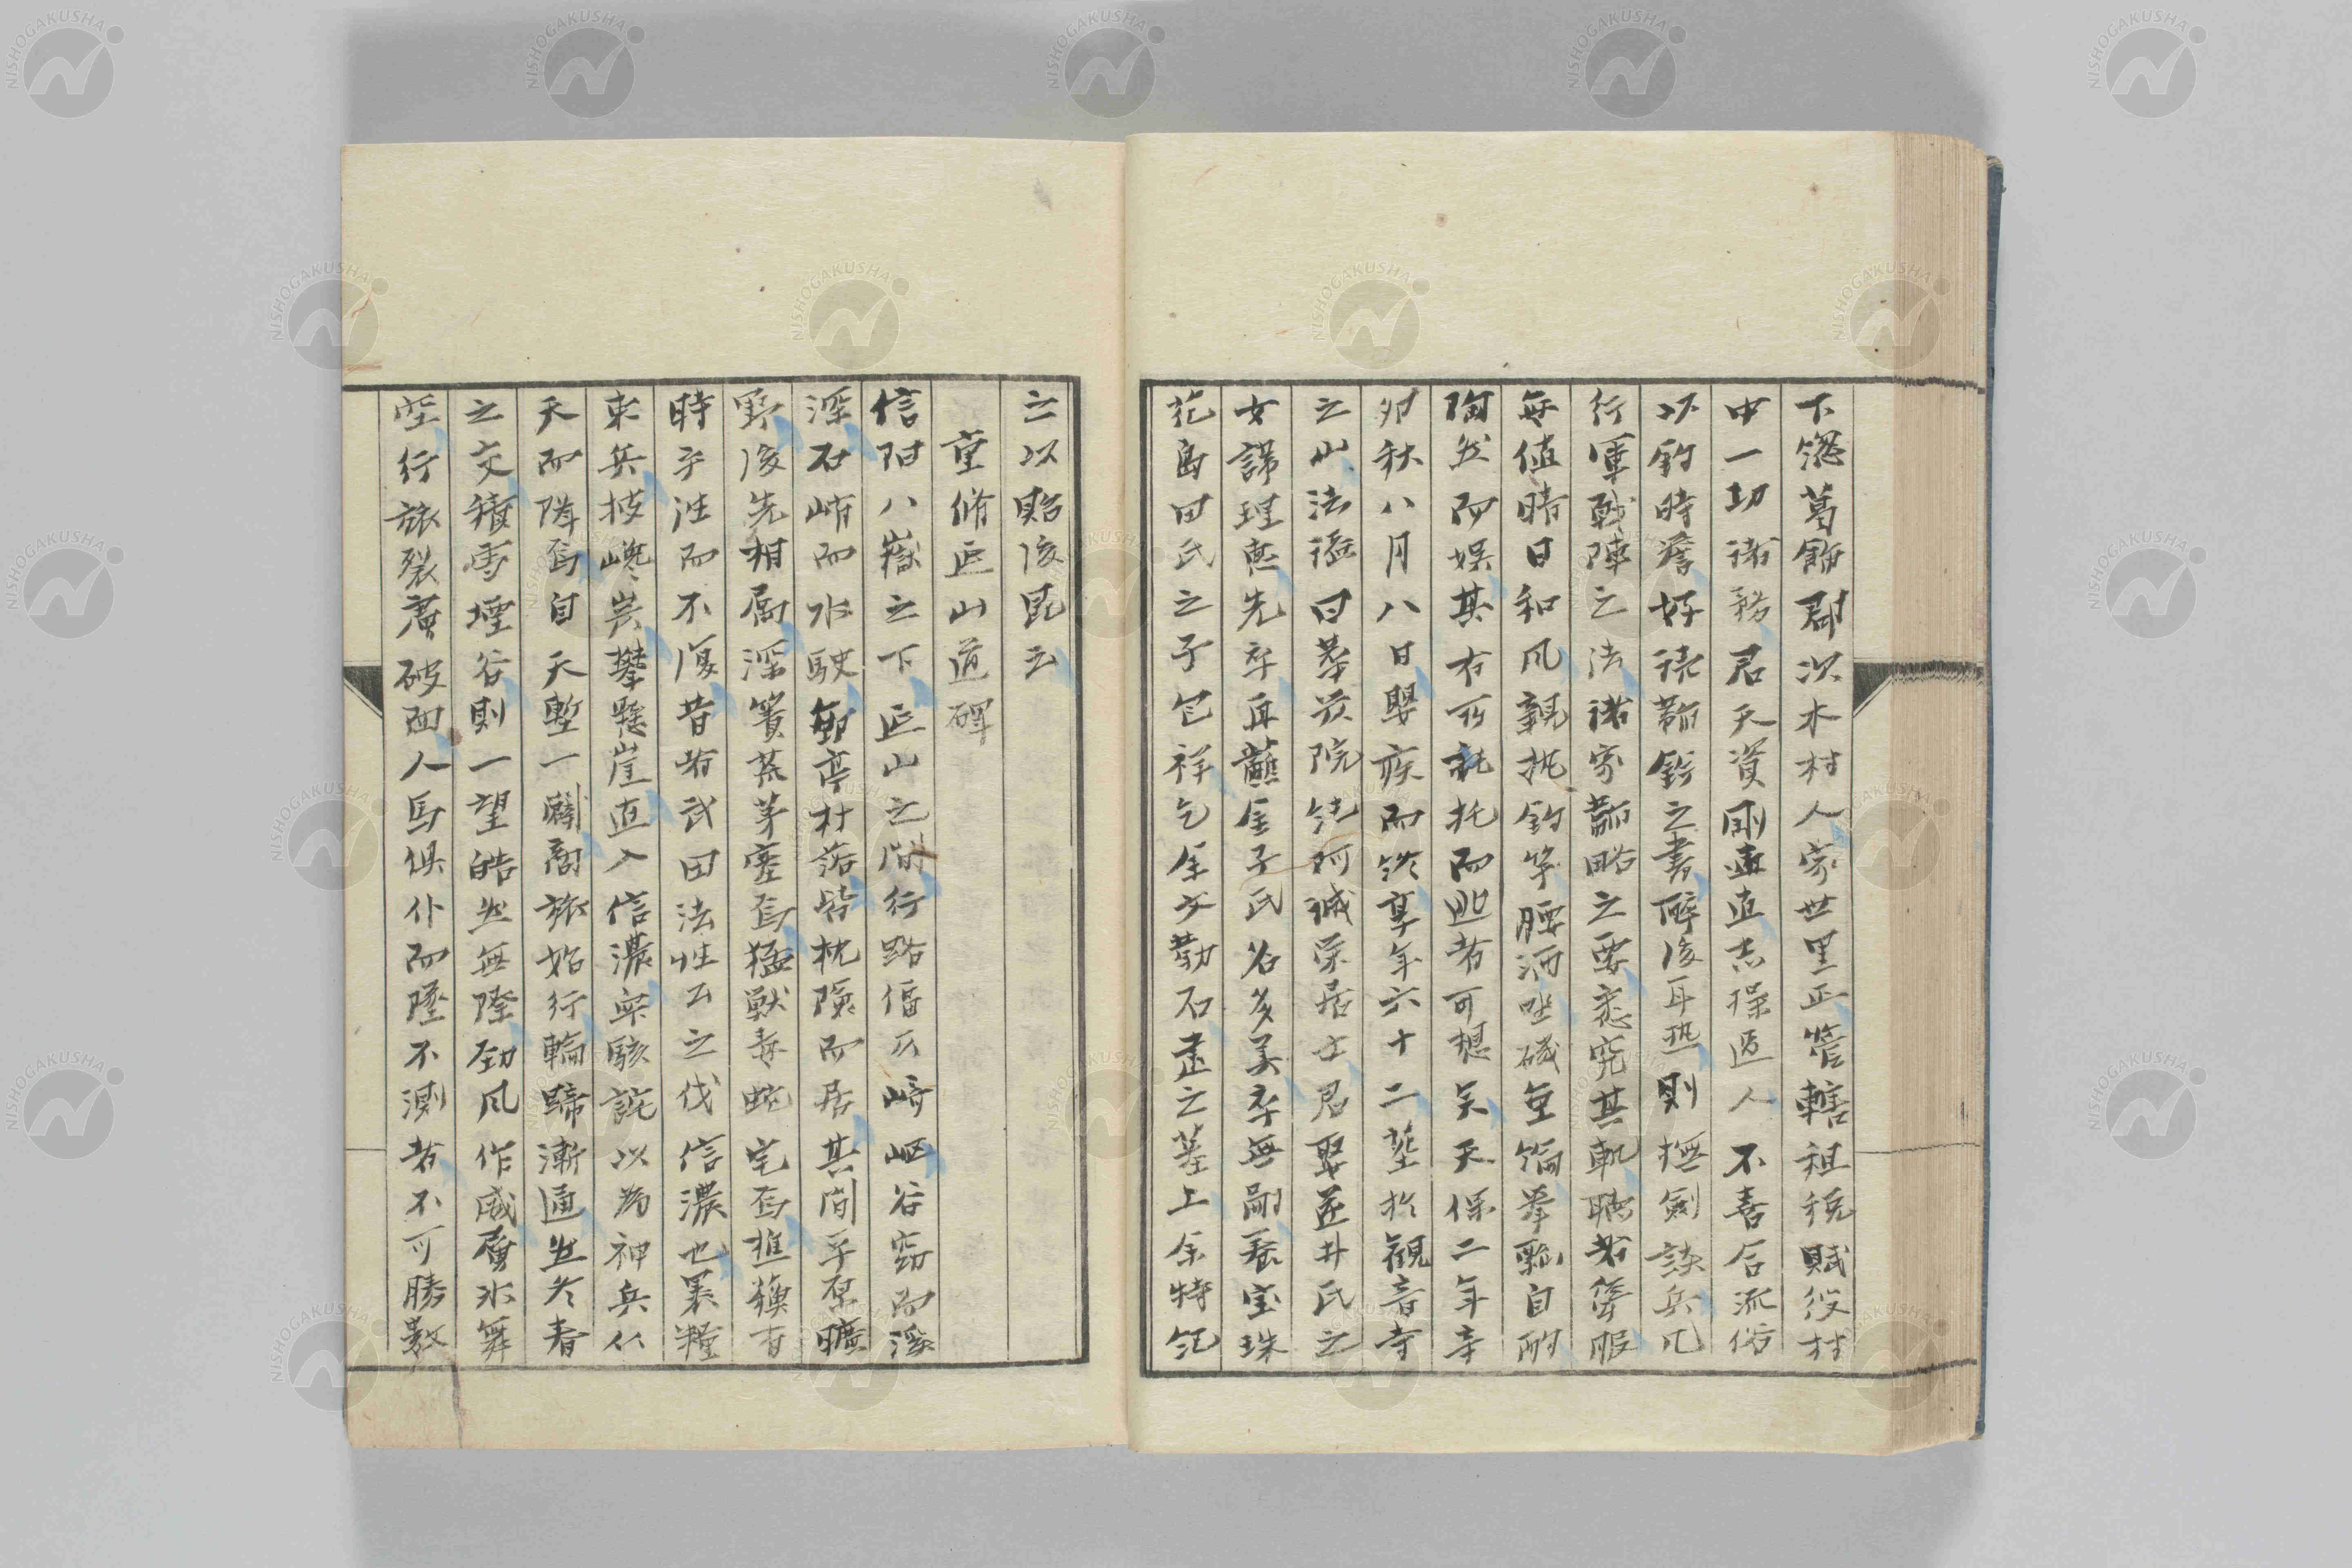 下總葛飾郡次木村人家世里正管轄租税賦役村
中一切諸務君天資剛直志操過人不喜合流俗
以釣時詹好読韜鈐之書酔後耳熱則撫劍談兵凡
行軍戦陣之法諸家韜略之要悉究其軌聴者傾服
毎値晴日和風親携釣竿腰酒坐磯垂綸挙瓢自酌
陶然而娯其有所託而逃者可想矣天保二年辛
卯秋八月八日嬰疾而終享年六十二葬於観音寺
之山法謚曰葦岸院釣阿誠栄居士君娶逆井氏之
女諱理恵先卒再醮金子氏名多美卒無嗣養宝珠
花島田氏之子包祥乞余文勒石建之墓上余特記
之以貽後昆云
重修正山道碑
信陽八嶽之下正山之間行路偪仄崎嶇谷窈而渓
深石峭而水駛郵亭村落皆枕險而居其間平原曠
野後先相屬深簀荒茅塞焉猛獣毒蛇宅焉推獲有
時乎往而不復昔者武田法性公之伐信濃也裹糧
束兵披巉巖攀懸崖直入信濃衆駭詫以為神兵仏
天而降焉自天塹一闢商旅始行輪蹄漸通然冬春
之交積雪堙谷則一望皓然無際勁風作威層氷舞
空行旅裂膚破面人馬倶仆而墜不測者不可勝数